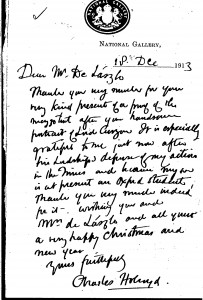 NATIONAL GALLERY,
18. Dec 1913
Dear Mr. De László
Thank you very much for your
very kind present of a proof of the
mezzotint after your handsome
portrait of Lord Curzon. It is especially
grateful to me just now after
his Lordship's defence of my actions
in the Times and because my son
is at present an Oxford Student.
Thank you very much indeed
for it - wishing you and
Mrs de László and all yours
a very happy Christmas and
new year.
Yours faithfully
Charles Holroyd.